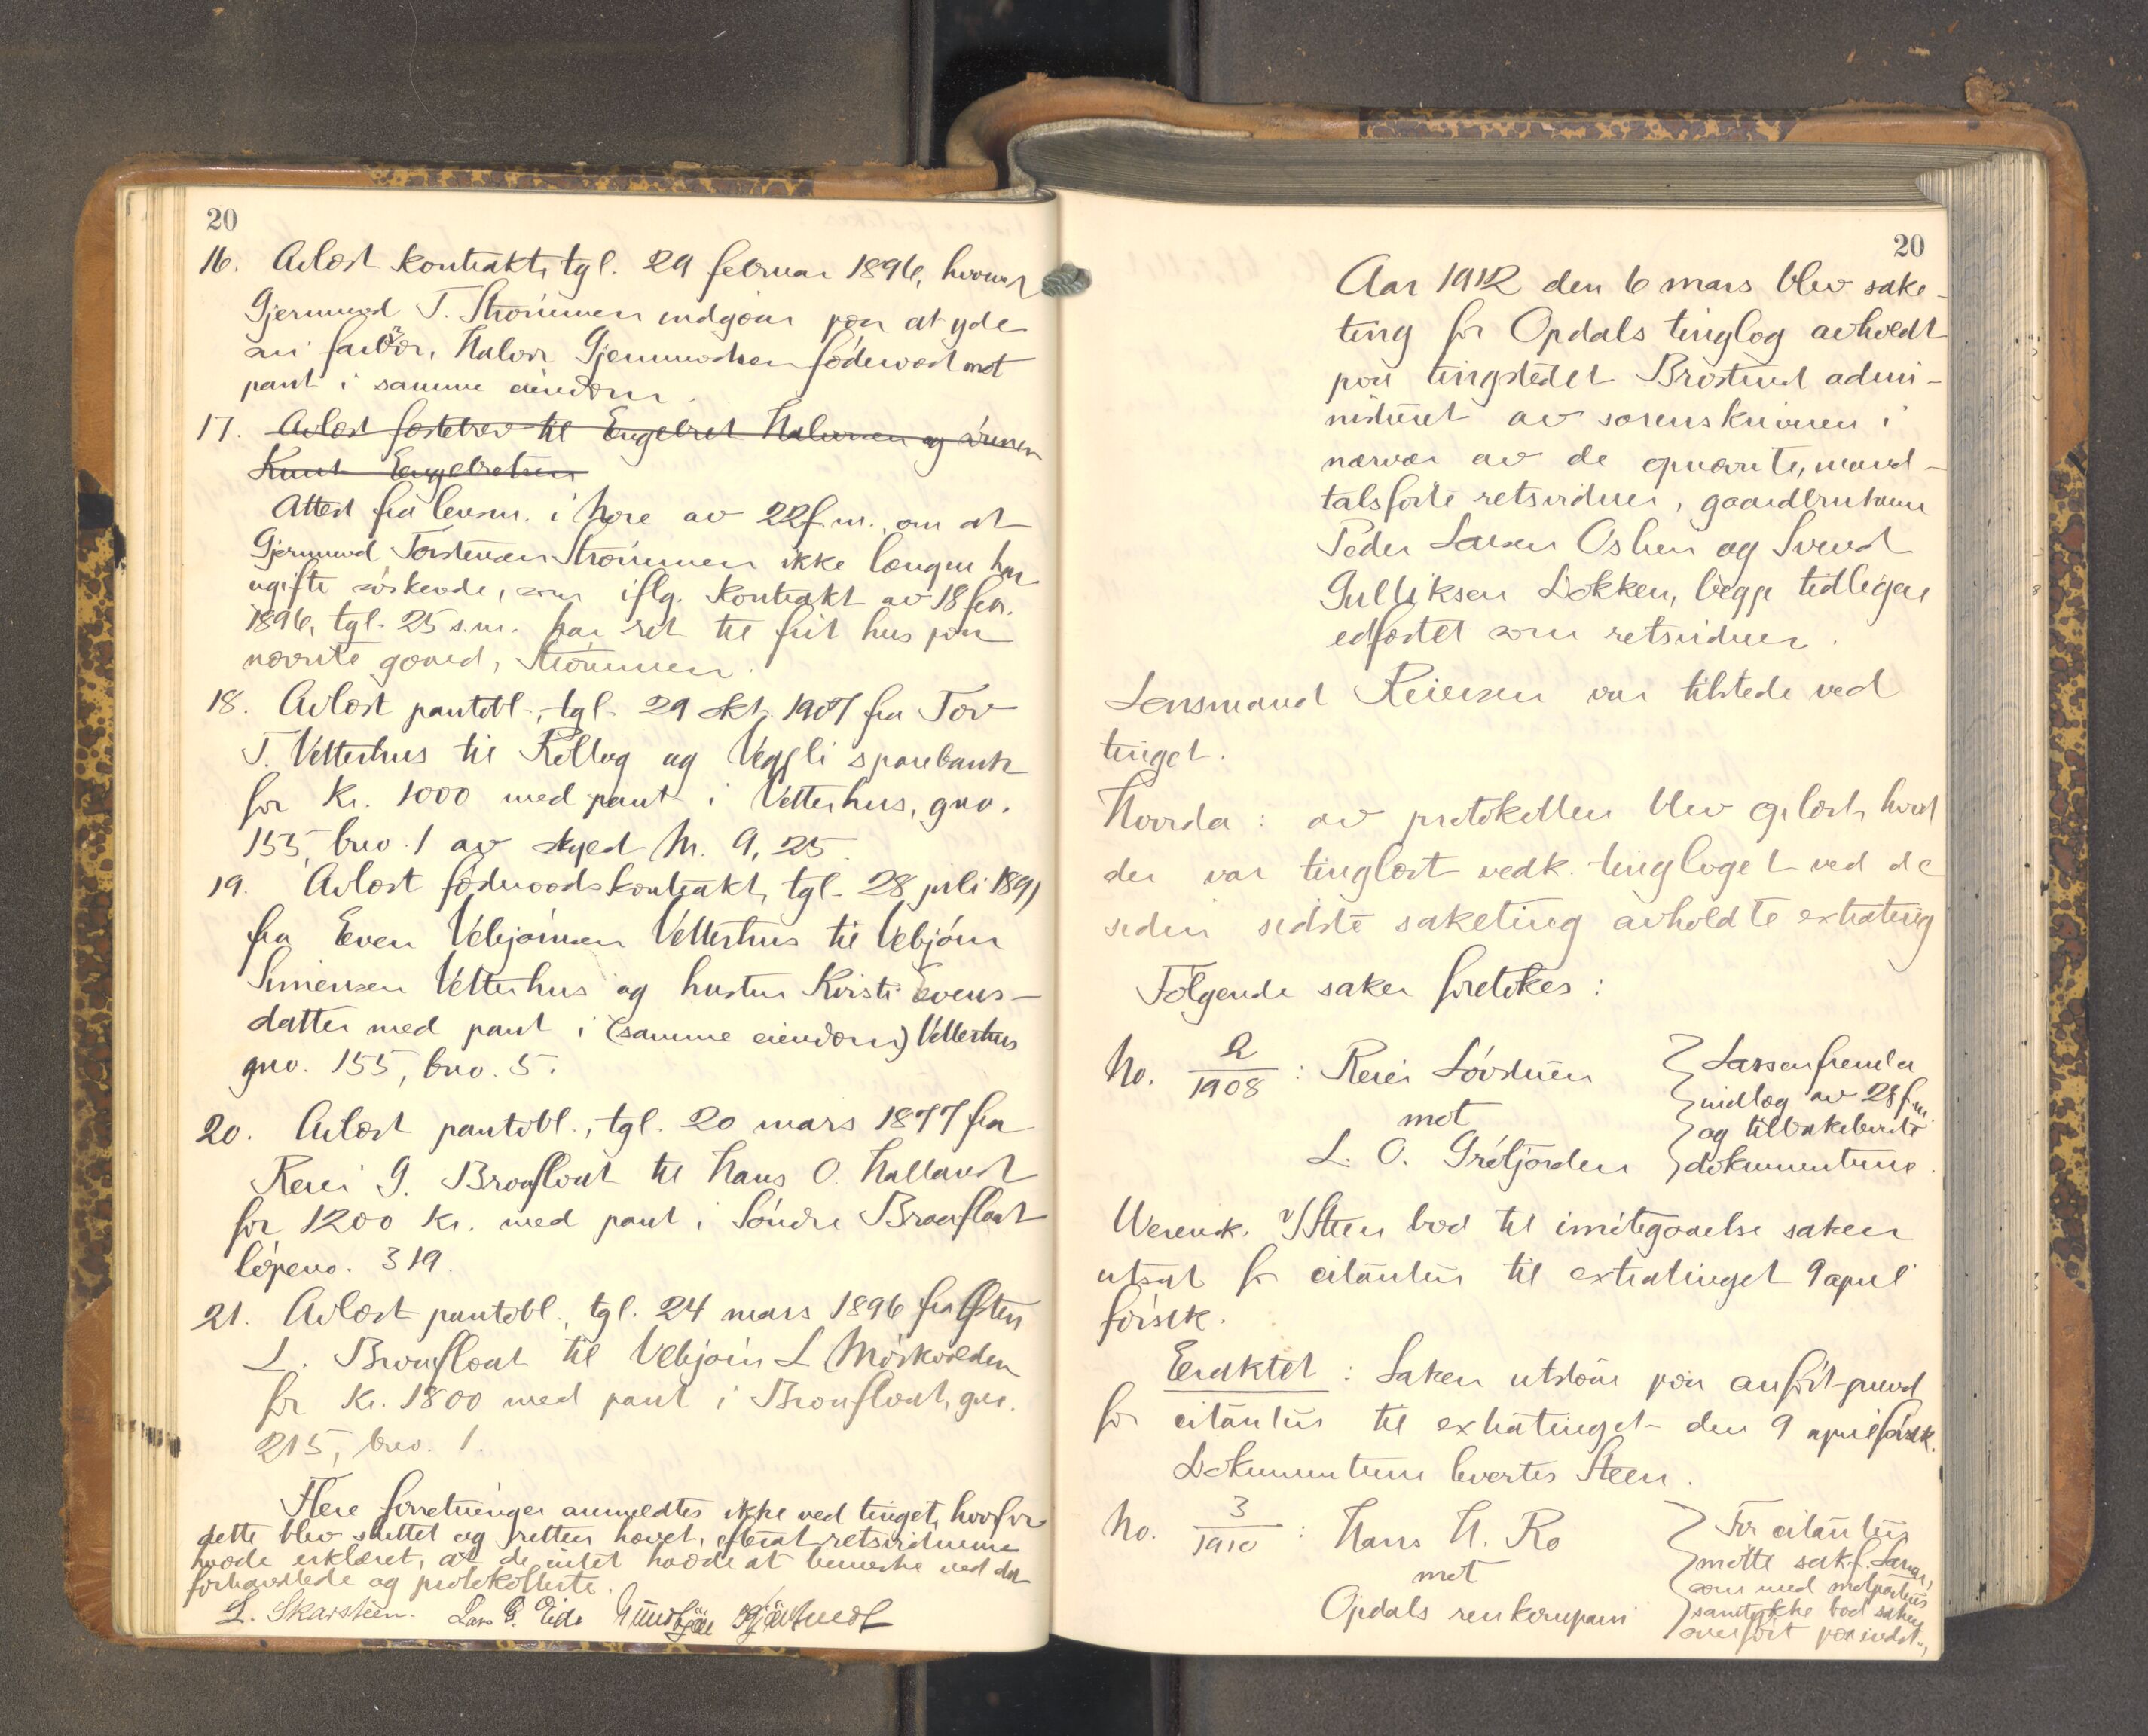 20
16. Avlæst kontrakt, tgl. 29 februar 1896, hvorved
Gjermund T. Strømmen indgaar paa at yde
sin farbror, Halvor Gjermundsen føderaad mot
pant i samme eiendom.
17. Avlæst festebrev til Engebret Halvorsen og sønnen
Knut Engebretsen
Attest fra lensm. i Nore av 22 f.m., om at
Gjermund Torstensen Strømmen ikke længer har
ugifte søskende, som iflg. kontrakt av 18 febr.
1896, tgl. 25 s.m. har ret til frit hus paa
nævnte gaard, Strømmen.
18. Avlæst pantobl., tgl. 29 okt. 1907 fra Tov
T. Vetterhus til Rollag og Veggli sparebank
for Kr. 1000 med pant i Vetterhus, gno.
155, bno. 1 av skyld M. 9,25
19. Avlæst føderaadskontrakt, tgl. 28 juli 1891
fra Even Vebjørnsen Vetterhus til Vebjørn
Simensen Vetterhus og hustru Kristi Evens-
datter med pant i (samme eiendom) Vetterhus
gno. 155, bno. 5.
20. Avlæst pantobl., tgl. 20 mars 1877 fra
Reier G. Braaflaat til Hans O. Halland
for 1200 kr. med pant i Søndre Braaflaat
løpeno. 319.
21. Avlæst pantobl., tgl. 24 mars 1896 fra Østen
L. Braaflaat til Vebjørn L Mørkvolden
for Kr. 1800 med pant i Braaflaat, gno.
215, bno. 1.
Flere forretninger anmeldtes ikke ved tinget, hvorfor
dette blev sluttet og retten hævet, efterat retsvidnerne
hadde erklæret, at de intet hadde at bemerke ved det
forhandlede og protokollerte.
L. Skarsteen. Lars G. Eide
20
Aar 1912 den 6 mars blev sake-
ting for Opdals tinglag avholdt
paa tingstedet Brostrud admi-
nistreret av sorenskriveren i
nærvær av de opnævnte, mand-
talsførte retsvidner, gaardbrukerne
Peder Larsen Oshen og Svend
Gulliksen Dokken, begge tidligere
edfæstet som retsvidner.
Lensmand Reiersen var tilstede ved
tinget.
Hvorda: av protokollen blev oplæst, hvad
der var tinglæst vedk. tinglaget ved de
siden sidste saketing avholdte extrating
Følgende saker foretokes:
No. 2/1908: Reier Løvstuen
mot
L. O. Grøtjorden
Larsen fremla
indlæg av 28 f.m.
og tilbakeleverte
dokumenterne.
Werensk. v/Steen bad til imøtegaaelse saken
utsat for citanten til extratinget 9 april
førstk.
Eraktet: Saken utstaar paa anført grund
for citanten til extratinget den 9 april førstk.
Dokumenterne levertes Steen.
No. 3/1910: Hans H. Ro
mot
Opdals renkompani
For citanten
møtte sakf. Larsen,
som med motpartens
samtykke bad saken
overført paa indst.,